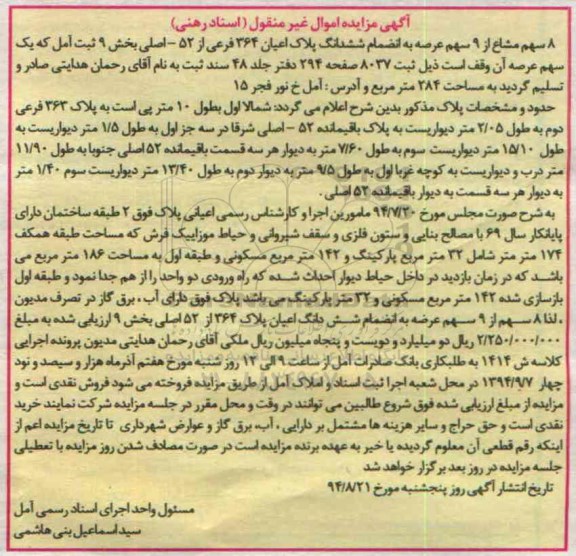 آگهی مزایده اموال غیر منقول (اسناد رهنی)
۸ سهم مشاع از ۹ سهم عرصه به انضمام ششدانگ پلاک اعیان ۳۶۴ فرعی از ۵۲ - اصلی بخش ۹ ثبت آمل که یک
سهم عرصه آن وقف است ذیل ثبت ۸۰۳۷ صفحه ۲۹۴ دفتر جلد ۴۸ سند ثبت به نام آقای رحمان هدایتی صادر و
تسلیم گردید به مساحت ۲۸۴ متر مربع و آدرس : آمل خ نور فجر ۱۵
حدود و مشخصات پلاک مذکور بدین شرح اعلام می گردد: شمالا اول بطول ۱۰ متر پی است به پلاک ۳۶۳ فرعی
دوم به طول ۲/۰۵ متر دیواریست به پلاک باقیمانده ۵۲ - اصلی شرقا در سه جز اول به طول ۱/۵ متر دیواریست به
طول ۱۵/۱۰ متر دیواریست سوم به طول ۷/۶۰ متر به دیوار هر سه قسمت باقیمانده ۵۲ اصلی جنوبا به طول ۱۱/۹۰
متر درب و دیواریست به کوچه غربا اول به طول ۹/۵ متر به دیوار دوم به طول ۱۳/۴۰ متر دیواریست سوم ۱/۴۰ متر
به دیوار هر سه قسمت به دیوار باقیمانده ۵۲ اصلی .
به شرح صورت مجلس مورخ ۹۴/۷/۲۰ مامورین اجرا و کارشناس رسمی اعیانی پلاک فوق ۲ طبقه ساختمان دارای
پایانکار سال ۶۹ با مصالح بنایی و ستون فلزی و سقف شیروانی و حیاط موزاییک فرش که مساحت طبقه همکف
۱۷۴ متر متر شامل ۳۲ متر مربع پارکینگ و ۱۴۲ متر مربع مسکونی و طبقه اول به مساحت ۱۸۶ متر مربع می
باشد که در زمان بازدید در داخل حیاط دیوار احداث شده که راه ورودی دو واحد را از هم جدا نمود و طبقه اول
بازسازی شده ۱۴۲ متر مربع مسکونی و ۳۲ متر پارکینگ می باشد پلاک فوق دارای آب ، برق گاز در تصرف مدیون
. لذا ۸ سهم از ۹ سهم عرصه به انضمام شش دانگ اعیان پلاک ۳۶۴ از ۵۲ اصلی بخش ۹ ارزیابی شده به مبلغ
۲/۲۵۰/۰۰۰/۰۰۰ ریال دو میلیارد و دویست و پنجاه میلیون ریال ملکی آقای رحمان هدایتی مدیون پرونده اجرایی
کلاسه ش ۱۴۱۴ به طلبکاری بانک صادرات آمل از ساعت ۹ الی ۱۲ روز شنبه مورخ هفتم آذرماه هزار و سیصد و نود
چهار ۱۳۹۴/۹/۷ در محل شعبه اجرا ثبت اسناد و املاک آمل از طریق مزایده فروخته می شود فروش نقدی است و
مزایده از مبلغ ارزیابی شده فوق شروع طالبین می توانند در وقت و محل مقرر در جلسه مزایده شرکت نمایند خرید
نقدی است و حق حراج و سایر هزینه ها مشتمل بر دارایی ، آب، برق گاز و عوارض شهرداری تا تاریخ مزایده اعم از
اینکه رقم قطعی آن معلوم گردیده یا خیر به عهده برنده مزایده است در صورت مصادف شدن روز مزایده با تعطیلی
جلسه مزایده در روز بعد برگزار خواهد شد
تاریخ انتشار آگهی روز پنجشنبه مورخ ۹۴/۸/۲۱
مسئول واحد اجرای اسناد رسمی آمل
سید اسماعیل بنی هاشمی